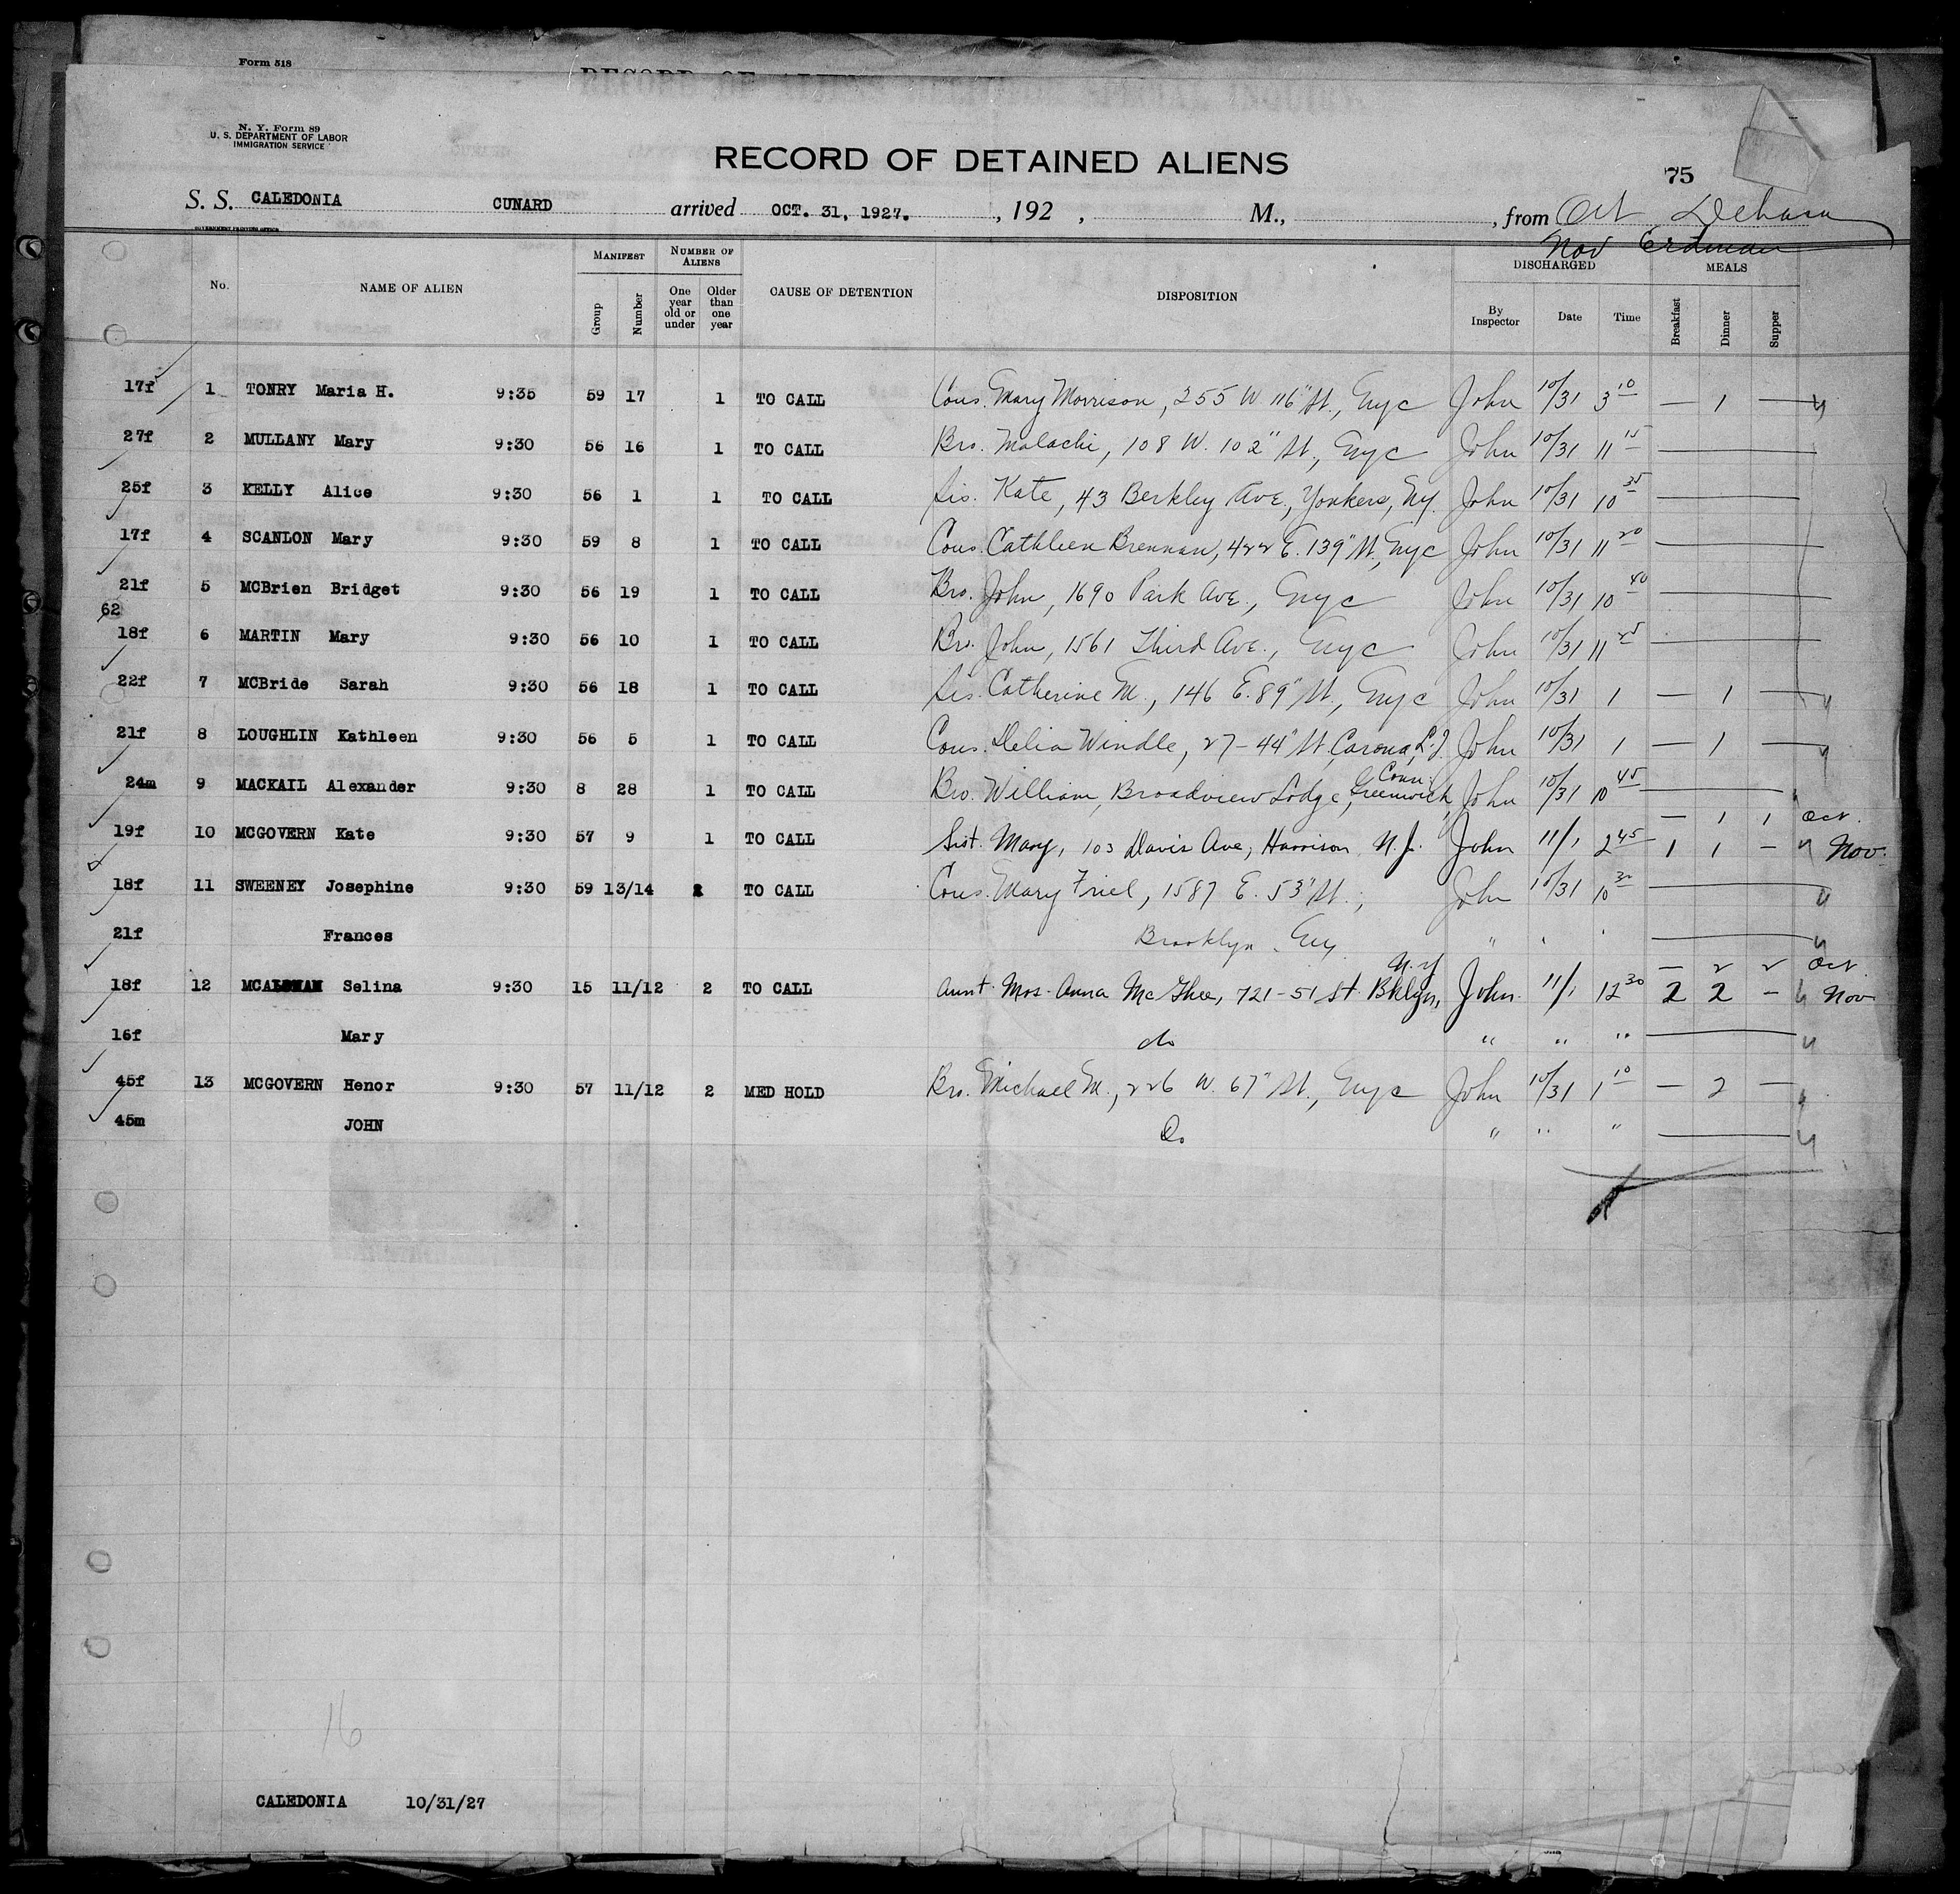 Form 518
N. Y. Form 89
U. S. DEPARTMENT OF LABOR
IMMIGRATION SERVICE
RECORD OF DETAINED ALIENS
75
S. S. CALEDONIA CUNARD arrived OCT. 31, 1927. , 192 , M., , from Oct
Nov Erdman
No. NAME OF ALIEN MANIFEST Group Number NUMBER OF ALIENS One year old or under Older than one year CAUSE OF DETENTION DISPOSITION DISCHARGED By Inspector Date Time MEALS Breakfast Dinner Supper
17f 1 TONRY Maria H. 9:35 59 17 1 TO CALL Cous. Mary Morrison, 255 W 116" St., Nyc John 10/31 3 10 — 1 —
27f 2 MULLANY Mary 9:30 56 16 1 TO CALL Bro. Malachi, 108 W. 102" St., Nyc John 10/31 11 15 —
25f 3 KELLY Alice 9:30 56 1 1 TO CALL Sis. Kate, 43 Berkley Ave., Yonkers, Ny. John 10/31 10 35 —
17f 4 SCANLON Mary 9:30 59 8 1 TO CALL Cous. Cathleen Brennan, 422 E. 139" St., Nyc John 10/31 11 20 —
21f 5 MCBrien Bridget 9:30 56 19 1 TO CALL Bro. John, 1690 Park Ave., Nyc John 10/31 10 40 —
62
18f 6 MARTIN Mary 9:30 56 10 1 TO CALL Bro. John, 1561 Third Ave., Nyc John 10/31 11 25 —
22f 7 MCBride Sarah 9:30 56 18 1 TO CALL Sis. Catherine M., 146 E. 89" St., Nyc John 10/31 1 — 1 —
21f 8 LOUGHLIN Kathleen 9:30 56 5 1 TO CALL Cous. Delia Windle, 27-44" St. Corona, L.I. John 10/31 1 — 1 —
24m 9 MACKAIL Alexander 9:30 8 28 1 TO CALL Bro. William, Broadview Lodge, Greenwich, Conn. John 10/31 10 45 —
— 1 1 Oct.
19f 10 MCGOVERN Kate 9:30 57 9 1 TO CALL Sist. Mary, 103 Davis Ave, Harrison N.J. John 11/1 2 45 1 1 — Nov.
18f 11 SWEENEY Josephine 9:30 59 13/14 2 TO CALL Cous. Mary Friel, 1587 E. 53" St., John 10/31 10 30 —
21f Frances Brooklyn Ny. " " " —
— 2 2 Oct.
18f 12 Selina 9:30 15 11/12 2 TO CALL Aunt Mrs. Anna McGhee, 721-51 St. Bklyn, N.Y John 11/1 12 30 2 2 — Nov
16f Mary do " " " —
45f 13 MCGOVERN Henor 9:30 57 11/12 2 MED HOLD Bro. Michael M., 226 W. 67" St., Nyc John 10/31 1 10 — 2 —
45m JOHN Do " " " —
16
CALEDONIA 10/31/27